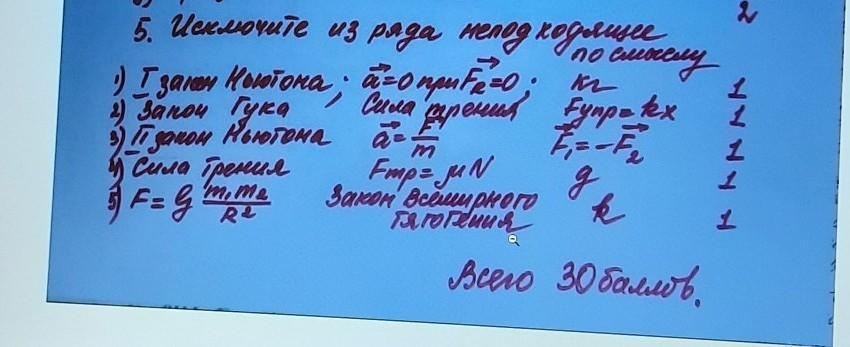 2
5. Исключите из ряда неподходящее
по смыслу
1) I закон Ньютона; a⃗=0 при F⃗R=0; кг 1
2) Закон Гука Сила трения Fупр=kx 1
3) II закон Ньютона a⃗=F⃗/m F⃗₁=-F⃗₂ 1
4) Сила трения Fтр=μN g 1
5) F=G m₁m₂/R² Закон всемирного k 1
тяготения
Всего 30 баллов.